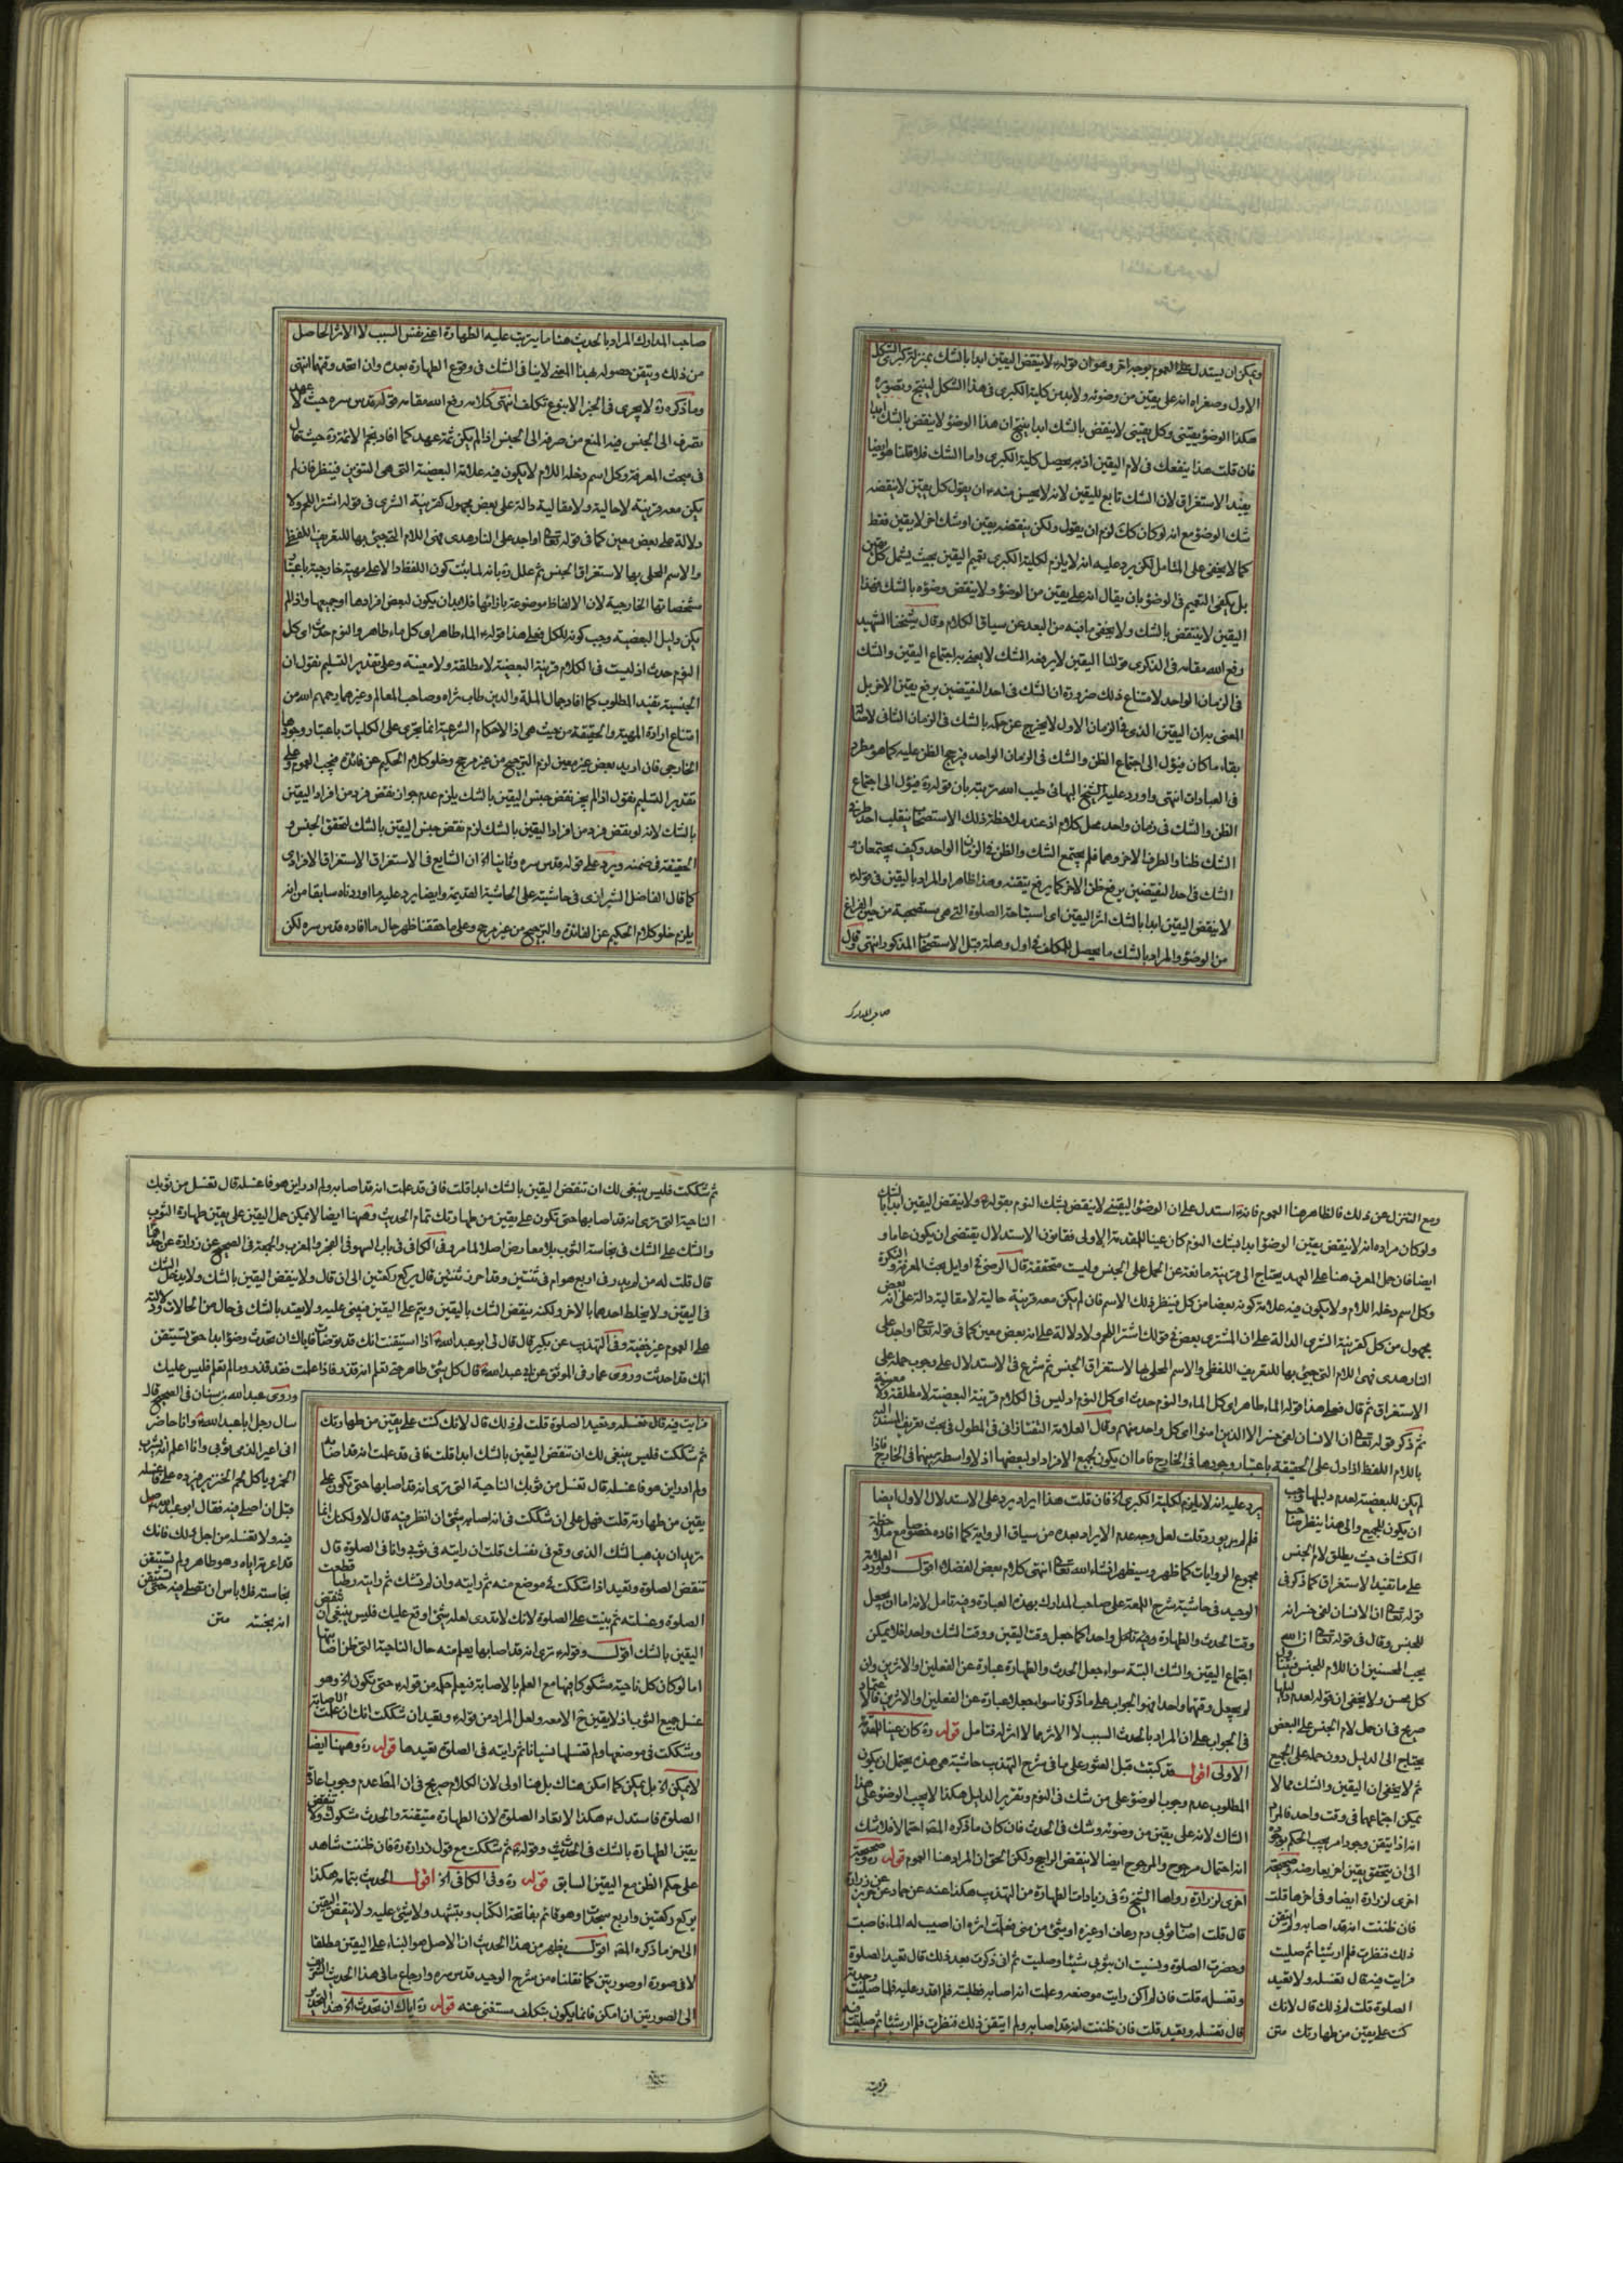 ويمكن ان يستدل على العموم بوجه اخر وهو ان قوله لا ينقض اليقين ابدا بالشك بمنزلة كبرى الشكل
الاول وصغراه انه على يقين من وضوئه ولا بد من كلية الكبرى في هذا الشكل لينتج وتصويره
هكذا الوضوء يقيني وكل يقيني لا ينقض بالشك ابدا ينتج ان هذا الوضوء لا ينقض بالشك ابدا
فان قلت هذا ينفعك في لام اليقين اذ به يحصل كلية الكبرى واما الشك فلا قلنا هو ايضا
يفيد الاستغراق لان الشك تابع لليقين لانه لا يحسن منه ان يقول كل يقين لا ينقضه
شك الوضوء مع انه لو كان كك لزم ان يقول ولكن ينقضه يقين او شك اخر لا يقين فقط
كما لا يخفى على المتامل لكن يرد عليه انه لا يلزم لكلية الكبرى تعميم اليقين بحيث يشمل كل يقين
بل يكفي التعميم في الوضوء بان يقال انه على يقين من الوضوء ولا ينقض وضوءه بالشك فهذا
اليقين لا ينتقض بالشك ولا يخفى ما فيه من البعد عن سياق الكلام وقال شيخنا الشهيد
رفع الله مقامه في الذكرى قولنا اليقين لا يرفعه الشك لا نعني به اجتماع اليقين والشك
في الزمان الواحد لامتناع ذلك ضرورة ان الشك في احد النقيضين يرفع يقين الاخر بل
المعنى به ان اليقين الذي في الزمان الاول لا يخرج عن حكمه بالشك في الزمان الثاني لاصالة
بقاء ما كان فيؤل الى اجتماع الظن والشك في الزمان الواحد فيرجح الظن عليه كما هو مطرد
في العبادات انتهى واورد عليه الشيخ البهائي طيب الله تربته بان قوله ره فيؤل الى اجتماع
الظن والشك في زمان واحد محل كلام اذ عند ملاحظة ذلك الاستصحاب ينقلب احد طرفي
الشك ظنا والطرف الاخر وهما فلم يجتمع الشك والظن في الزمان الواحد وكيف يجتمعان و
الشك في احد النقيضين يرفع ظن الاخر كما يرفع يقينه وهذا ظاهر والمراد باليقين في قوله
لا ينقض اليقين ابدا بالشك اثر اليقين اي استباحة الصلوة التي هي مستصحبة من حين الفراغ
من الوضوء والمراد بالشك ما يحصل للمكلف في اول وهلة قبل الاستصحاب المذكور انتهى وقول
صاحب المدارك
صاحب المدارك المراد بالحدث هنا ما يترتب عليه الطهارة اعني نفس السبب لا الاثر الحاصل
من ذلك وتيقن حصوله بهذا المعنى لا ينافي الشك في وقوع الطهارة بعده وان اتحد وقتهما انتهى
وما ذكره ره لا يجري في الخبر الا بنوع تكلف انتهى كلامه رفع الله مقامه قوله قدس سره حيث لا عهد
تصرف الى الجنس فيه المنع من صرفه الى الجنس اذا لم يكن ثمة عهد كما افاد نجم الائمة ره حيث قال
في مبحث المعرفة وكل اسم دخله اللام لا يكون فيه علامة البعضية التي هي التنوين فينظر فان لم
يكن معه قرينة لا حالية ولا مقالية دالة على بعض مجهول كقرينة الشرى في قوله اشتر اللحم ولا
دلالة على بعض معين كما في قوله تعالى او اجد على النار هدى فهي اللام التي جيئ بها للتعريف اللفظي
والاسم المحلى بها لاستغراق الجنس ثم علل ره بانه لما يثبت كون اللفظ دالا على مهية خارجية باعتبار
مشخصاتها الخارجية لان الالفاظ موضوعة بازائها فلا بد ان يكون لبعض افرادها او جميعها واذ لم
يكن دليل البعضية وجب كونه للكل فعلى هذا قوله الماء طاهر اي كل ماء طاهر والنوم حدث اي كل
النوم حدث اذ ليست في الكلام قرينة البعضية لا مطلقة ولا معينة وعلى تقدير التسليم نقول ان
الجنسية تفيد المطلوب كما افاد جمال الملة والدين طاب ثراه وصاحب المعالم وغيرهما رحمهم الله من
امتناع ارادة المهية والحقيقة من حيث هي اذ الاحكام الشرعية انما تجري على الكليات باعتبار وجودها
الخارجي فان اريد بعض غير معين لزم الترجيح من غير مرجح وخلو كلام الحكيم عن فائدة فيجب العموم وعلى
تقدير التسليم نقول اذا لم يجز نقض جنس اليقين بالشك يلزم عدم جواز نقض فرد من افراد اليقين
بالشك لانه لو نقض فرد من افراد اليقين بالشك لزم نقض جنس اليقين بالشك لتحقق الجنس و
الحقيقة في ضمنه ويرد على قوله قدس سره وثانيا الخ ان الشايع في الاستغراق الاستغراق الافرادي
كما قال الفاضل الشيرازي في حاشيته على الحاشية القديمة وايضا يرد عليه ما اوردناه سابقا من انه
يلزم خلو كلام الحكيم عن الفائدة والترجيح من غير مرجح وعلى ما حققنا ظهر حال ما افاده قدس سره لكن
ومع التنزل عن ذلك فالظاهر هنا العموم فانه استدل على ان الوضوء اليقيني لا ينقض بشك النوم بقوله ولا ينقض اليقين ابدا بالشك
ولو كان مراده انه لا ينقض يقين الوضوء ابدا بشك النوم كان عينا للمقدمة الاولى فقانون الاستدلال يقتضي ان يكون عاما و
ايضا فان حمل المعرف هنا على العهد يحتاج الى قرينة مانعة عن الحمل على الجنس وليست متحققة قال الرضي في اوايل بحث المعرفة والنكرة
وكل اسم دخله اللام ولا يكون فيه علامة كونه بعضا من كل فينظر ذلك الاسم فان لم يكن معه قرينة حالية لا مقالية دالة على انه بعض
مجهول من كل كقرينة الشرى الدالة على ان المشترى بعض في قولك اشتر اللحم ولا دلالة على انه بعض معين كما في قوله تعالى او اجد على
النار هدى فهي اللام التي جيئ بها للتعريف اللفظي والاسم المحلى بها لاستغراق الجنس ثم شرع في الاستدلال على وجوب حمله على
الاستغراق ثم قال فعلى هذا قوله الماء طاهر اي كل الماء والنوم حدث اي كل النوم اذ ليس في الكلام قرينة البعضية لا مطلقة ولا معينة
ثم ذكر قوله تعالى ان الانسان لفي خسر الا الذين امنوا اي كل واحد منهم وقال العلامة التفتازاني في المطول في بحث تعريف المسند اليه
باللام اللفظ اذا دل على الحقيقة باعتبار وجودها في الخارج فاما ان يكون لجميع الافراد او لبعضها اذ لا واسطة بينهما في الخارج فاذا
لم يكن للبعضية لعدم دليلها وجب
ان يكون للجميع والى هذا ينظر صاحب
الكشاف حيث يطلق لام الجنس
على ما تفيد الاستغراق كما ذكر في
قوله تعالى ان الانسان لفي خسر انه
للجنس وقال في قوله تعالى ان الله
يحب المحسنين ان اللام للجنس فيتناول
كل محسن ولا يخفى ان قوله لعدم دليلها
صريح في ان حمل لام الجنس على البعض
يحتاج الى الدليل دون حمله على الجميع
ثم لا يخفى ان اليقين والشك مما لا
يمكن اجتماعهما في وقت واحد فالمراد
انه اذا تيقن وجود امر يجب الحكم بوجوده
الى ان يتحقق يقين اخر يعارضه وصحيحة
اخرى لزرارة ايضا وفي اخرها قلت
فان ظننت انه قد اصابه ولم اتيقن
ذلك فنظرت فلم ار شيئا ثم صليت
فرايت فيه قال تغسله ولا تعيد
الصلوة قلت لم ذلك قال لانك
كنت على يقين من طهارتك متن
يرد عليه انه لا يلزم لكلية الكبرى الخ فان قلت هذا ايراد يرد على الاستدلال الاول ايضا
فلم لم يورد قلت لعل وجه عدم الايراد بعده من سياق الرواية كما افاده خصوصا مع ملاحظة
مجموع الروايات كما ظهر وسيظهر انشاء الله تعالى انتهى كلام بعض الفضلا اقول واورد العلامة
الوحيد في حاشية شرح اللمعة على صاحب المدارك بهذه العبارة وفيه تامل لانه اما ان يجعل
وقتا لحدث والطهارة وقتا واحدا كما جعل وقت اليقين ووقت الشك واحد فلا يمكن
اجتماع اليقين والشك البتة سواء جعل الحدث والطهارة عبارة عن الفعلين او الاثرين وان
لم يجعل وقتهما واحدا فهو الجواب على ما ذكرنا سواء جعلا عبارة عن الفعلين او الاثرين فالاعتماد
في الجواب على ان المراد بالحدث السبب لا الاثر مما لا اثر له فتامل قوله ره كان عينا للمقدمة
الاولى اقول قد كتبت قبل العثور على ما في شرح التهذيب حاشية هي هذه يحتمل ان يكون
المطلوب عدم وجوب الوضوء على من شك في النوم وتقرير الدليل هكذا لا يجب الوضوء على هذا
الشاك لانه على يقين من وضوئه وشك في الحدث فان كان ما ذكره المصنف احتمالا فلا شك
انه احتمال مرجوح والمرجوح ايضا لا ينقض الراجح ولكن الحق ان المراد هنا العموم قوله ره وصحيحة
اخرى لزرارة رواها الشيخ ره في زيادات الطهارة من التهذيب هكذا عنه عن حماد عن حريز عن زرارة
قال قلت اصاب ثوبي دم رعاف او غيره او شيئ من مني فعلمت اثره ان اصيب له الماء فاصبت
وحضرت الصلوة ونسيت ان بثوبي شيئا وصليت ثم اني ذكرت بعد ذلك قال تعيد الصلوة
وتغسله قلت فان لم اكن رايت موضعه وعلمت انه اصابه فطلبته فلم اقدر عليه فلما صليت وجدته
قال تغسله وتعيد قلت فان ظننت انه قد اصابه ولم اتيقن ذلك فنظرت فلم ار شيئا ثم صليت فيه
فرايت
ثم شككت فليس ينبغي لك ان تنقض اليقين بالشك ابدا قلت فاني قد علمت انه قد اصابه ولم ادر اين هو فاغسله قال تغسل من ثوبك
الناحية التي ترى انه قد اصابها حتى تكون على يقين من طهارتك تمام الحديث وههنا ايضا لا يمكن حمل اليقين على يقين طهارة الثوب
والشك على الشك في نجاسة الثوب بلا معارض اصلا لما مر وفي الكافي في باب السهو في الفجر والمغرب والجمعة في الصحيح عن زرارة عن احدهما
قال قلت له من لم يدر في اربع هو ام في ثنتين وقد احرز ثنتين قال يركع ركعتين الى ان قال ولا ينقض اليقين بالشك ولا يدخل الشك
في اليقين ولا يخلط احدهما بالاخر ولكنه ينقض الشك باليقين ويتم على اليقين فيبني عليه ولا يعتد بالشك في حال من الحالات ودلالته
على العموم غير خفية وفي التهذيب عن بكير قال قال لي ابو عبد الله اذا استيقنت انك قد توضات فاياك ان تحدث وضوءا ابدا حتى تستيقن
انك قد احدثت وروى عمار في الموثق عن ابي عبد الله قال كل شيئ طاهر حتى تعلم انه قذر فاذا علمت فقد قذر وما لم تعلم فليس عليك
وروى عبد الله بن سنان في الصحيح قال
سال رجل ابا عبد الله وانا حاضر
اني اعير الذمي ثوبي وانا اعلم انه يشرب
الخمر وياكل لحم الخنزير فيرده علي فاغسله
قبل ان اصلي فيه فقال ابو عبد الله صل
فيه ولا تغسله من اجل ذلك فانك
قد اعرته اياه وهو طاهر ولم تستيقن
نجاسته فلا باس ان تصلي فيه حتى تستيقن
انه نجسته متن
فرايت فيه قال تغسله وتعيد الصلوة قلت لم ذلك قال لانك كنت على يقين من طهارتك
ثم شككت فليس ينبغي لك ان تنقض اليقين بالشك ابدا قلت فاني قد علمت انه قد اصابه
ولم ادر اين هو فاغسله قال تغسل من ثوبك الناحية التي ترى انه قد اصابها حتى تكون على
يقين من طهارته قلت فهل علي ان شككت في انه اصابه شيئ ان انظر فيه قال لا ولكنك انما
تريد ان يذهب الشك الذي وقع في نفسك قلت ان رايته في ثوبي وانا في الصلوة قال
تنقض الصلوة وتعيد اذا شككت في موضع منه ثم رايته وان لم تشك ثم رايته رطبا قطعت
الصلوة وغسلته ثم بنيت على الصلوة لانك لا تدري لعله شيئ اوقع عليك فليس ينبغي ان تنقض
اليقين بالشك اقول وقوله ترى انه قد اصابها يعلم منه حال الناحية التي ظن اصابتها
اما لو كان كل ناحية مشكوكا فيها مع العلم بالاصابة فيعلم حكمه من قوله حتى تكون الخ وهو
غسل جميع الثوب اذ لا يقين ح الا معه ولعل المراد من قوله وتعيد ان شككت انك ان علمت الاصابة
وشككت في موضعها ولم تغسلها نسيانا ثم رايته في الصلوة تعيدها قوله ره وههنا ايضا
لا يمكن الخ بل يمكن كما امكن هناك بل هنا اولى لان الكلام صريح في ان المط عدم وجوب اعادة
الصلوة فاستدل هكذا لا تعاد الصلوة لان الطهارة متيقنة والحدث مشكوك ولا تنقض
يقين الطهارة بالشك في الحدث وقوله ثم شككت مع قول زرارة ره فان ظننت شاهد
على حكم الظن مع اليقين السابق قوله ره وفي الكافي الخ اقول الحديث بتمامه هكذا
يركع ركعتين واربع سجدات وهو قائم بفاتحة الكتاب ويتشهد ولا شيئ عليه ولا ينقض اليقين
الى اخر ما ذكره المصنف اقول يظهر من هذا الحديث ان الاصل هو البناء على اليقين مطلقا
لا في صورة او صورتين كما نقلناه من شرح الوحيد قدس سره وارجاع ما في هذا الحديث الشريف
الى الصورتين ان امكن فانما يكون بتكلف مستغنى عنه قوله ره اياك ان تحدث الخ هذا الحديث